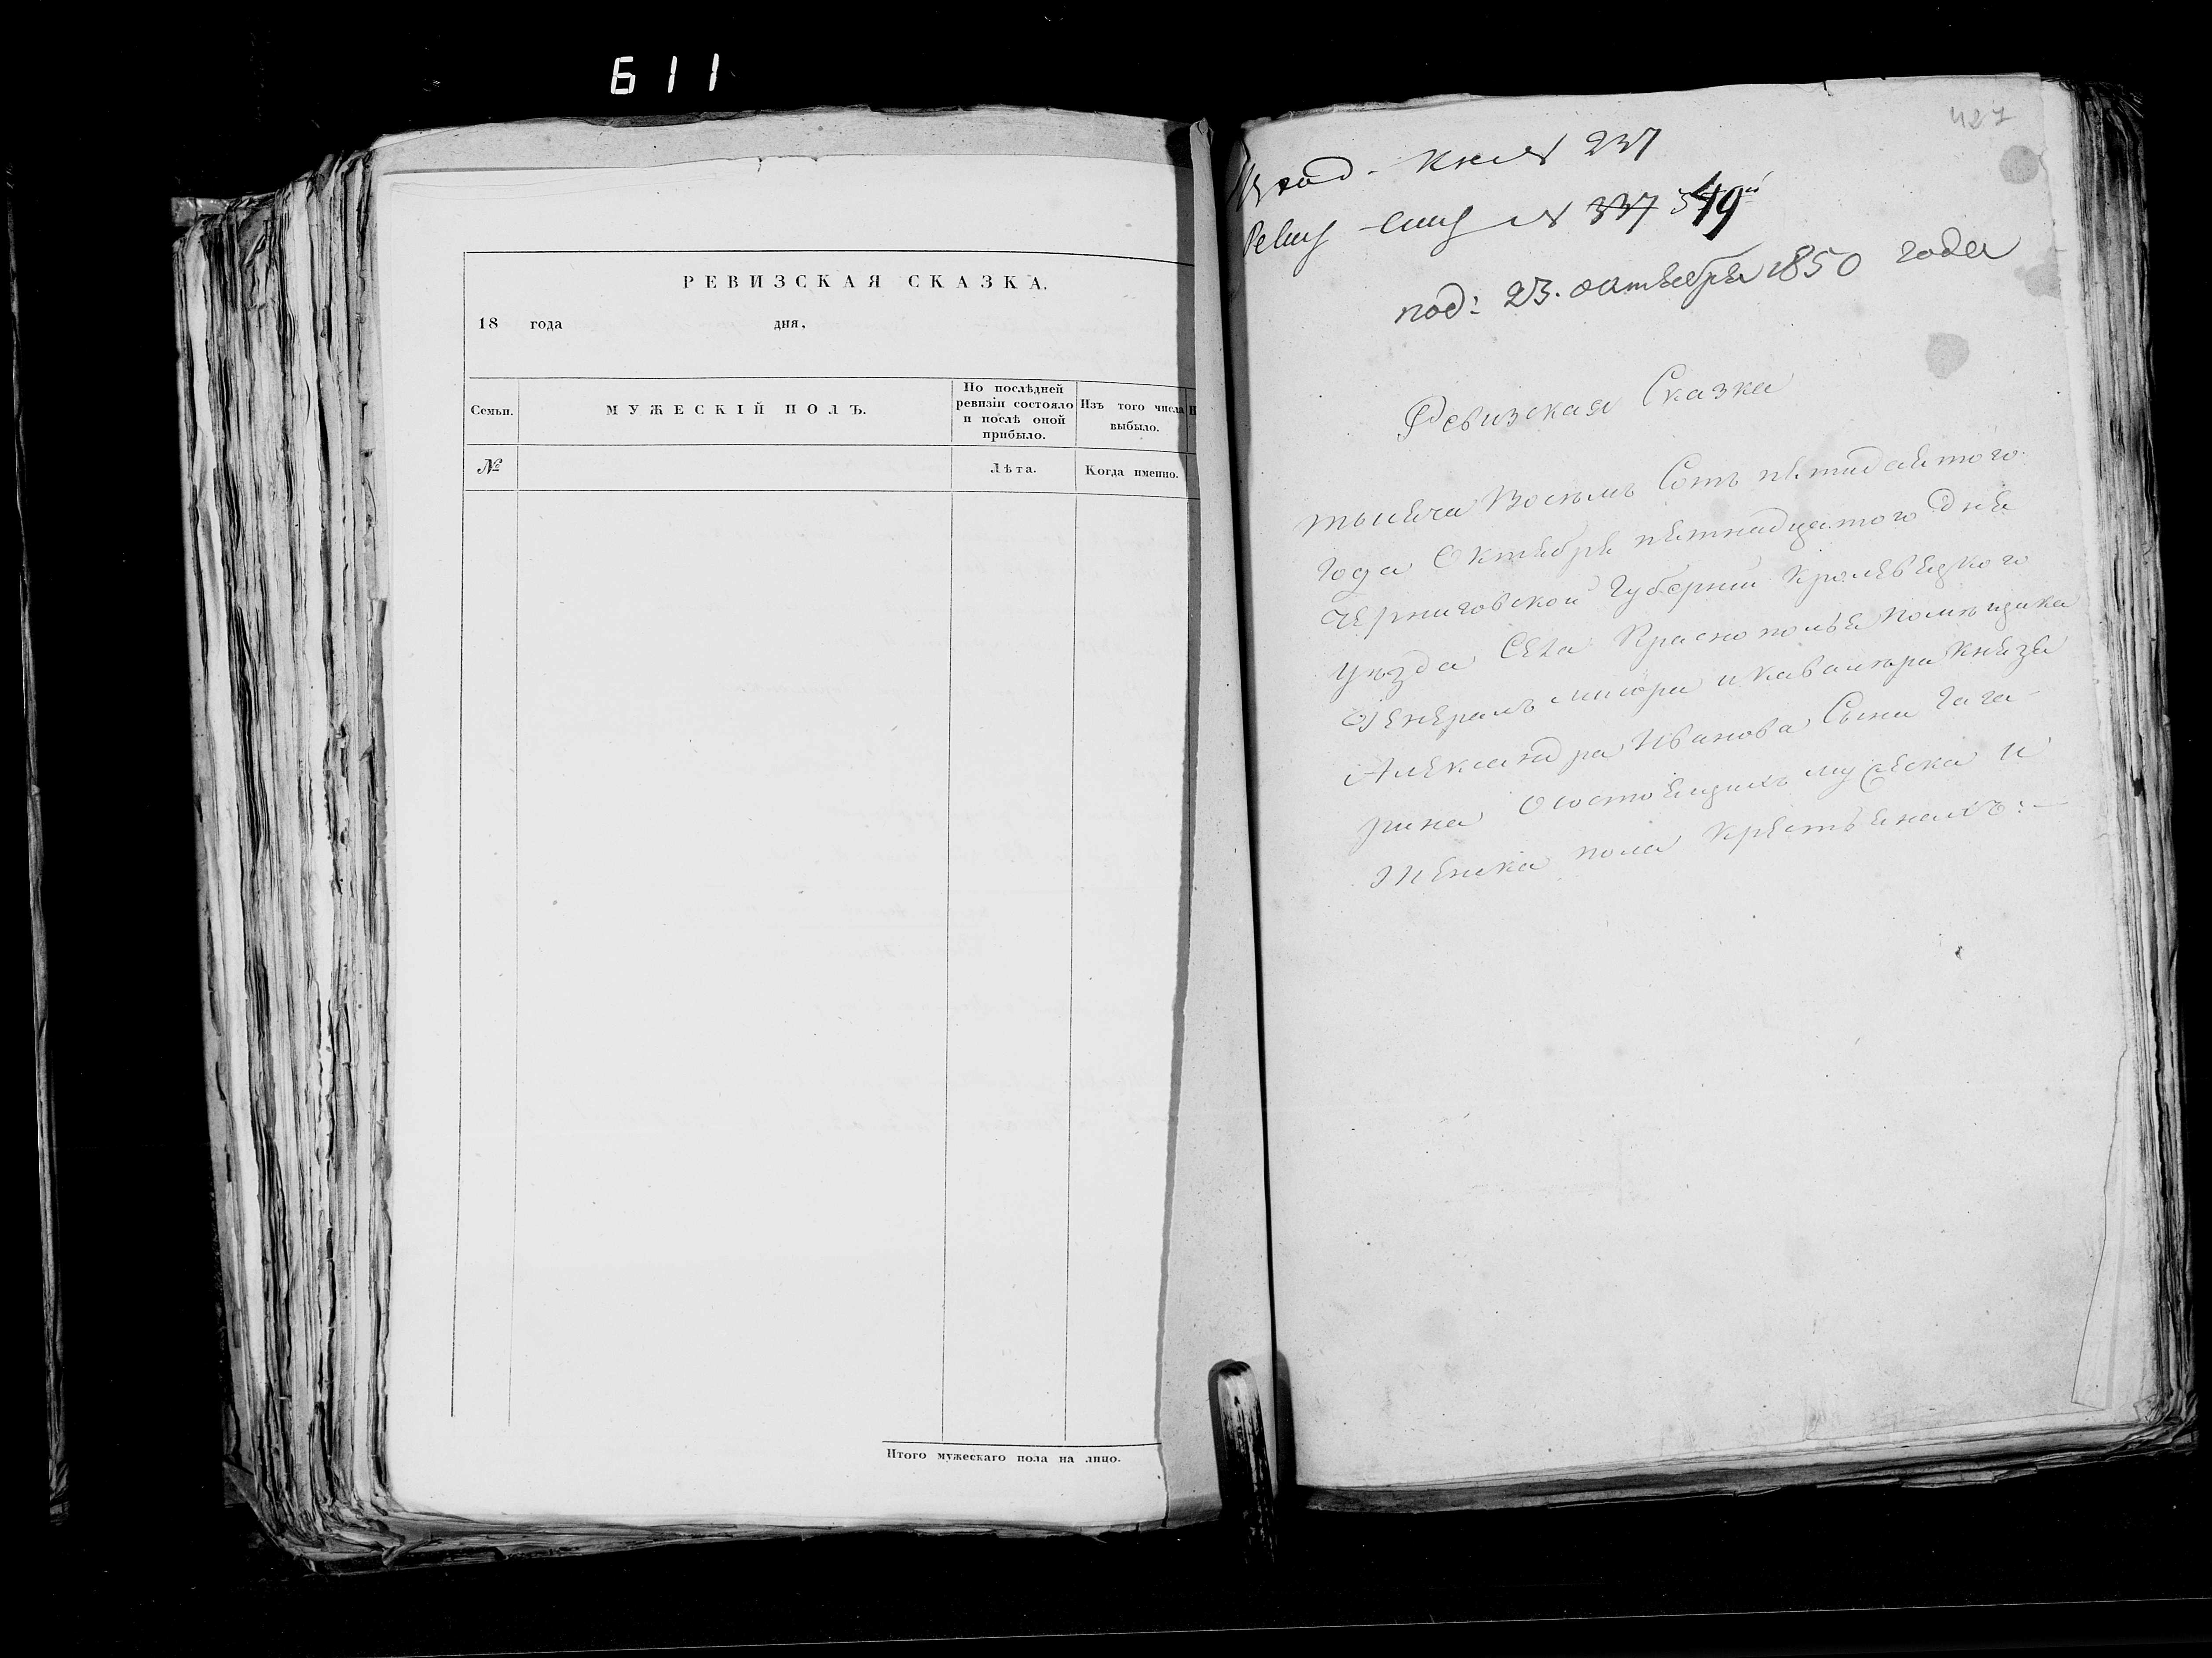 611
РЕВИЗСКАЯ СКАЗКА.
18 года дня,
Семьи.
МУЖЕСКІЙ ПОЛЪ.
По послѣдней
ревизіи состояло
и послѣ оной
прибыло.
Изъ того числа
выбыло.
№
Лѣта.
Когда именно.
Итого мужескаго пола на лицо.
427
вход. кн № 237
Ревиз № 337 349й
под: 23. октября 1850 года
Ревизская Сказка
тысяча Восемь Сотъ пятидесятого
Года Октября пятнадцатого Дня
Черниговской Губерніи Кролевецкого
уѣзда Села Краснополья Помѣщика
Генералъ Маіора и Кавалера Князя
Александра Иванова Сына Гага-
рина О состоящихъ мужеска и
женска пола Крестьянахъ:-